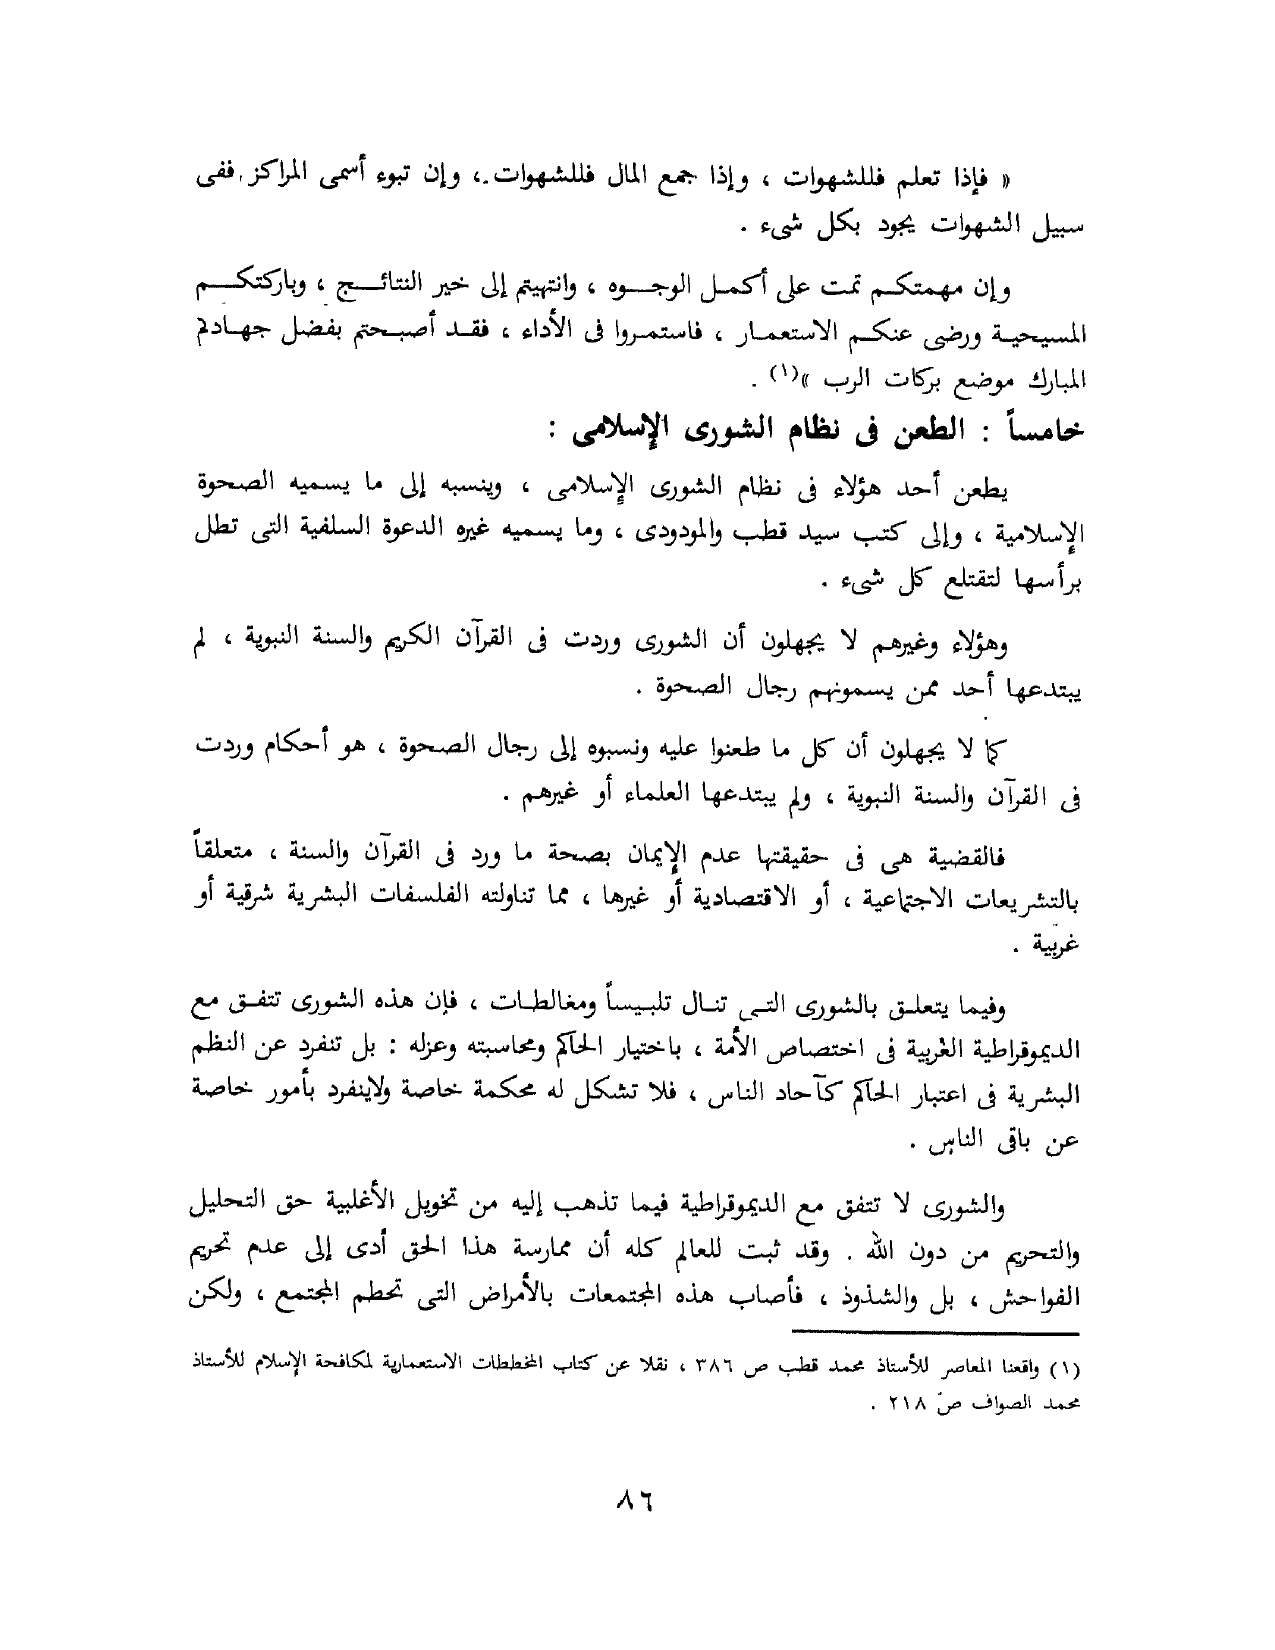 « فإذا تعلم فللشهوات ، وإذا جمع المال فللشهوات ، وإن تبوء أسمى المراكز ، ففى
سبيل الشهوات يجود بكل شىء .
وإن مهمتكم تمت على أكمل الوجوه ، وانتهيتم إلى خير النتائج ، وباركتكم
المسيحية ورضى عنكم الاستعمار ، فاستمروا فى الأداء ، فقد أصبحتم بفضل جهادكم
المبارك موضع بركات الرب »(١) .
خامساً : الطعن فى نظام الشورى الإسلامى :
يطعن أحد هؤلاء فى نظام الشورى الإسلامى ، وينسبه إلى ما يسميه الصحوة
الإسلامية ، وإلى كتب سيد قطب والمودودى ، وما يسميه غيره الدعوة السلفية التى تطل
برأسها لتقتلع كل شىء .
وهؤلاء وغيرهم لا يجهلون أن الشورى وردت فى القرآن الكريم والسنة النبوية ، لم
يبتدعها أحد ممن يسمونهم رجال الصحوة .
كما لا يجهلون أن كل ما طعنوا عليه ونسبوه إلى رجال الصحوة ، هو أحكام وردت
فى القرآن والسنة النبوية ، ولم يبتدعها العلماء أو غيرهم .
فالقضية هى فى حقيقتها عدم الإيمان بصحة ما ورد فى القرآن والسنة ، متعلقاً
بالتشريعات الاجتماعية ، أو الاقتصادية أو غيرها ، مما تناولته الفلسفات البشرية شرقية أو
غربية .
وفيما يتعلق بالشورى التى تنال تلبيساً ومغالطات ، فإن هذه الشورى تتفق مع
الديموقراطية الغربية فى اختصاص الأمة ، باختيار الحاكم ومحاسبته وعزله : بل تنفرد عن النظم
البشرية فى اعتبار الحاكم كآحاد الناس ، فلا تشكل له محكمة خاصة ولاينفرد بأمور خاصة
عن باقى الناس .
والشورى لا تتفق مع الديموقراطية فيما تذهب إليه من تخويل الأغلبية حق التحليل
والتحريم من دون الله . وقد ثبت للعالم كله أن ممارسة هذا الحق أدى إلى عدم تحريم
الفواحش ، بل والشذوذ ، فأصاب هذه المجتمعات بالأمراض التى تحطم المجتمع ، ولكن
(١) واقعنا المعاصر للأستاذ محمد قطب ص ٣٨٦ ، نقلا عن كتاب المخططات الاستعمارية لمكافحة الإسلام للأستاذ
محمد الصواف ص ٢١٨ .
٨٦